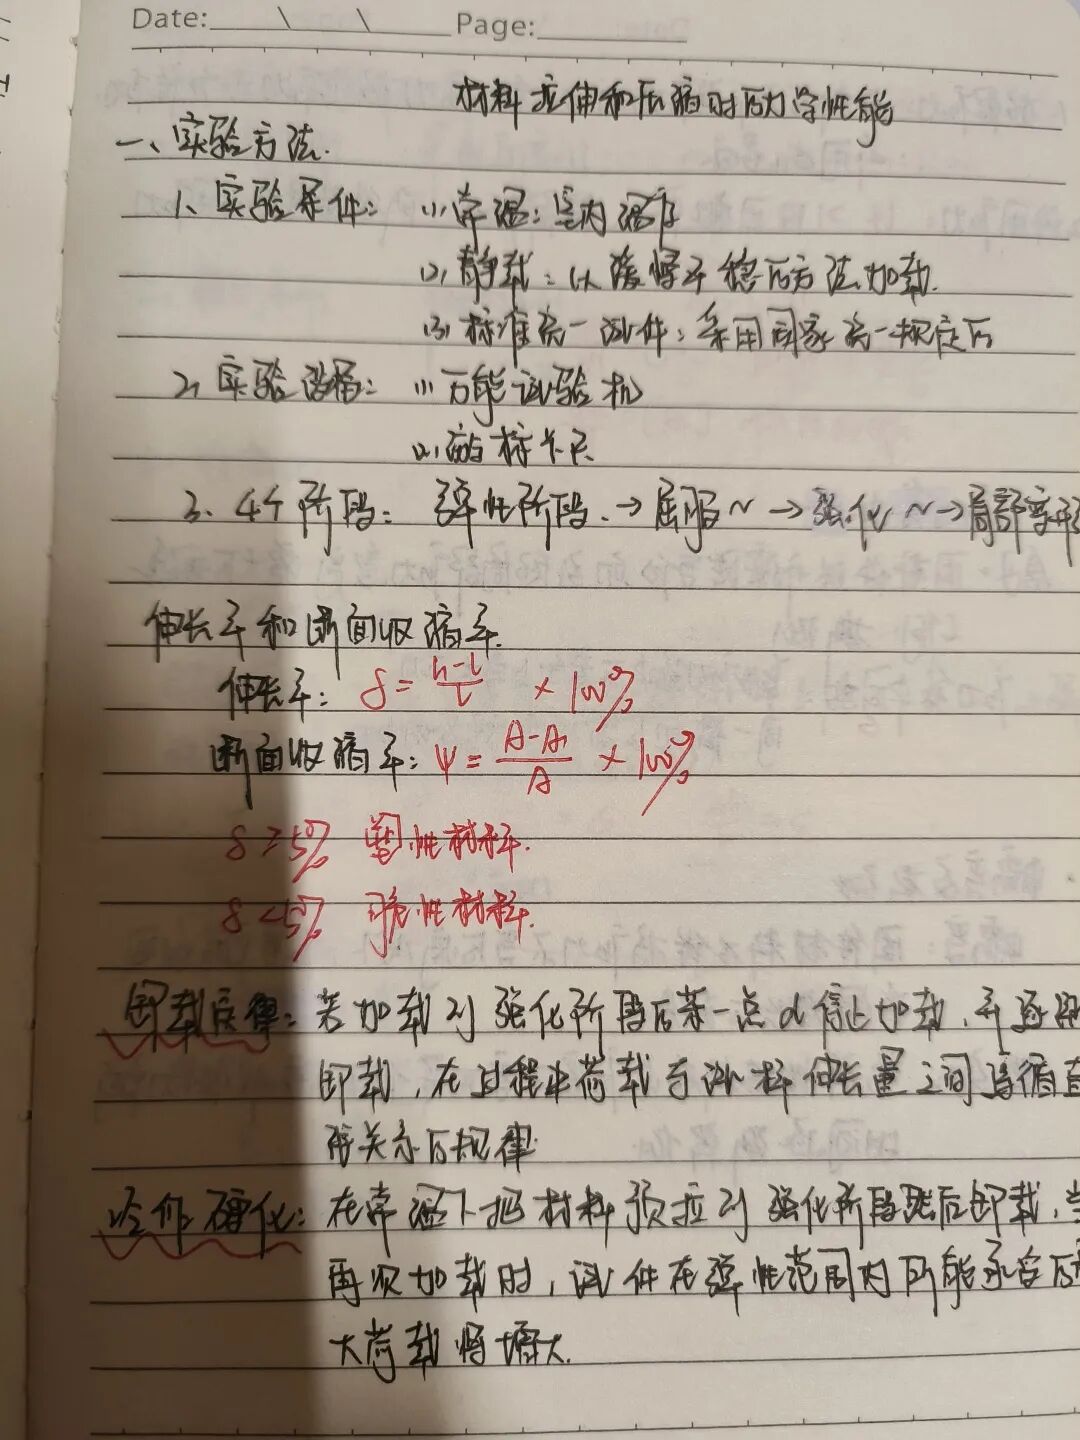 Date: \ \ Page:
材料拉伸和压缩时的力学性能
一、实验方法.
1、实验条件: (1)常温:室内温度
(2)静载:以缓慢平稳的方法加载.
(3)标准统一试件:采用国家统一规定的
2、实验设备: (1)万能试验机
(2)游标卡尺
3、4个阶段: 弹性阶段.→屈服~→强化~→局部变形
伸长率和断面收缩率.
伸长率: δ = l₁-l/l × 100%
断面收缩率: ψ = A-A₁/A × 100%
δ ≥ 5% 塑性材料.
δ < 5% 脆性材料.
卸载定律: 若加载到强化阶段的某一点d停止加载,并逐渐
卸载,在过程中荷载与试样伸长量之间遵循直
线关系的规律
冷作硬化: 在常温下把材料预拉到强化阶段然后卸载,当
再次加载时,试件在弹性范围内所能承受的
大荷载将增大.